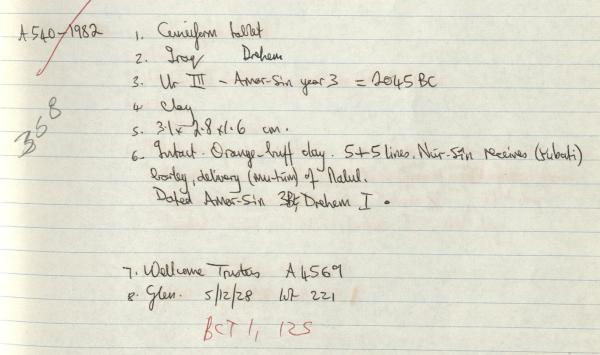 A540-1982
1. Cuneiform tablet
2. Iraq Drehem
3. Ur III - Amar-Sin year 3 = 2045 BC
4. Clay
5. 3.1 x 2.8 x 1.6 cm.
368
6. Intact. Orange-buff clay. 5+5 lines. Nur-Sin receives (šubati)
barley, delivery (mu-túm) of Nalul.
Dated Amar-Sin Drehem I.
7. Wellcome Trustees A4569
8. Glen. 5/12/28 lot 221
BCT 1, 125